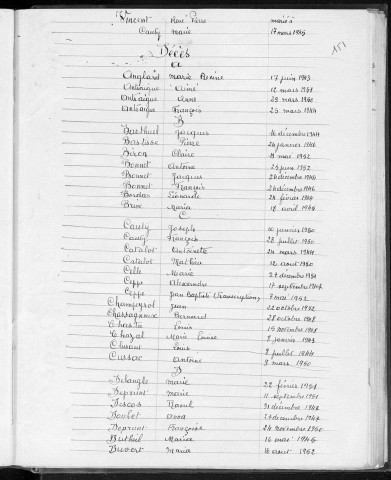 Vincent René Pierre marié à
Cauty Marie 17 mars 1945
151
Décès
A
Anglard Marie 17 juin 1943
Antéaigue Aimé 12 mars 1951
Antéaigue Anna 29 mars 1950
Antéaigue François 25 mars 1944
B
Barthuel Jacques 16 décembre 1944
Bastisse Pierre 26 janvier 1944
Biron Claire 18 mai 1952
Bonnet Antoine 25 juin 1952
Bonnet Jacques 24 décembre 1944
Bonnet François 24 décembre 1944
Bordas Léonarde 28 février 1944
Brive Maria 18 avril 1944
C
Cauty Joseph 20 janvier 1950
Cauty François 22 juillet 1950
Catalot Antoinette 24 mars 1944
Catalot Mathieu 12 août 1950
Celle Marie 27 décembre 1951
Cepp Alexandre 17 septembre 1944
Cepps Jean Baptiste (Transcription) 7 mai 1952
Champeyrol Jean 22 octobre 1952
Chassagnaux Bernard 28 octobre 1948
Chasta Louis 15 novembre 1948
Chazal Marie Louise 2 janvier 1943
Clusant Louis 2 juillet 1944
Cussac Antoine 2 mars 1950
D
Delangle Marie 22 février 1951
Deprunt Marie 11 septembre 1951
Descos Raoul 31 décembre 1942
Doulet Anna 27 décembre 1942
Deprunt Françoise 24 novembre 1950
Dutheil Marica 16 mai 1946
Duvert Maria 16 août 1952